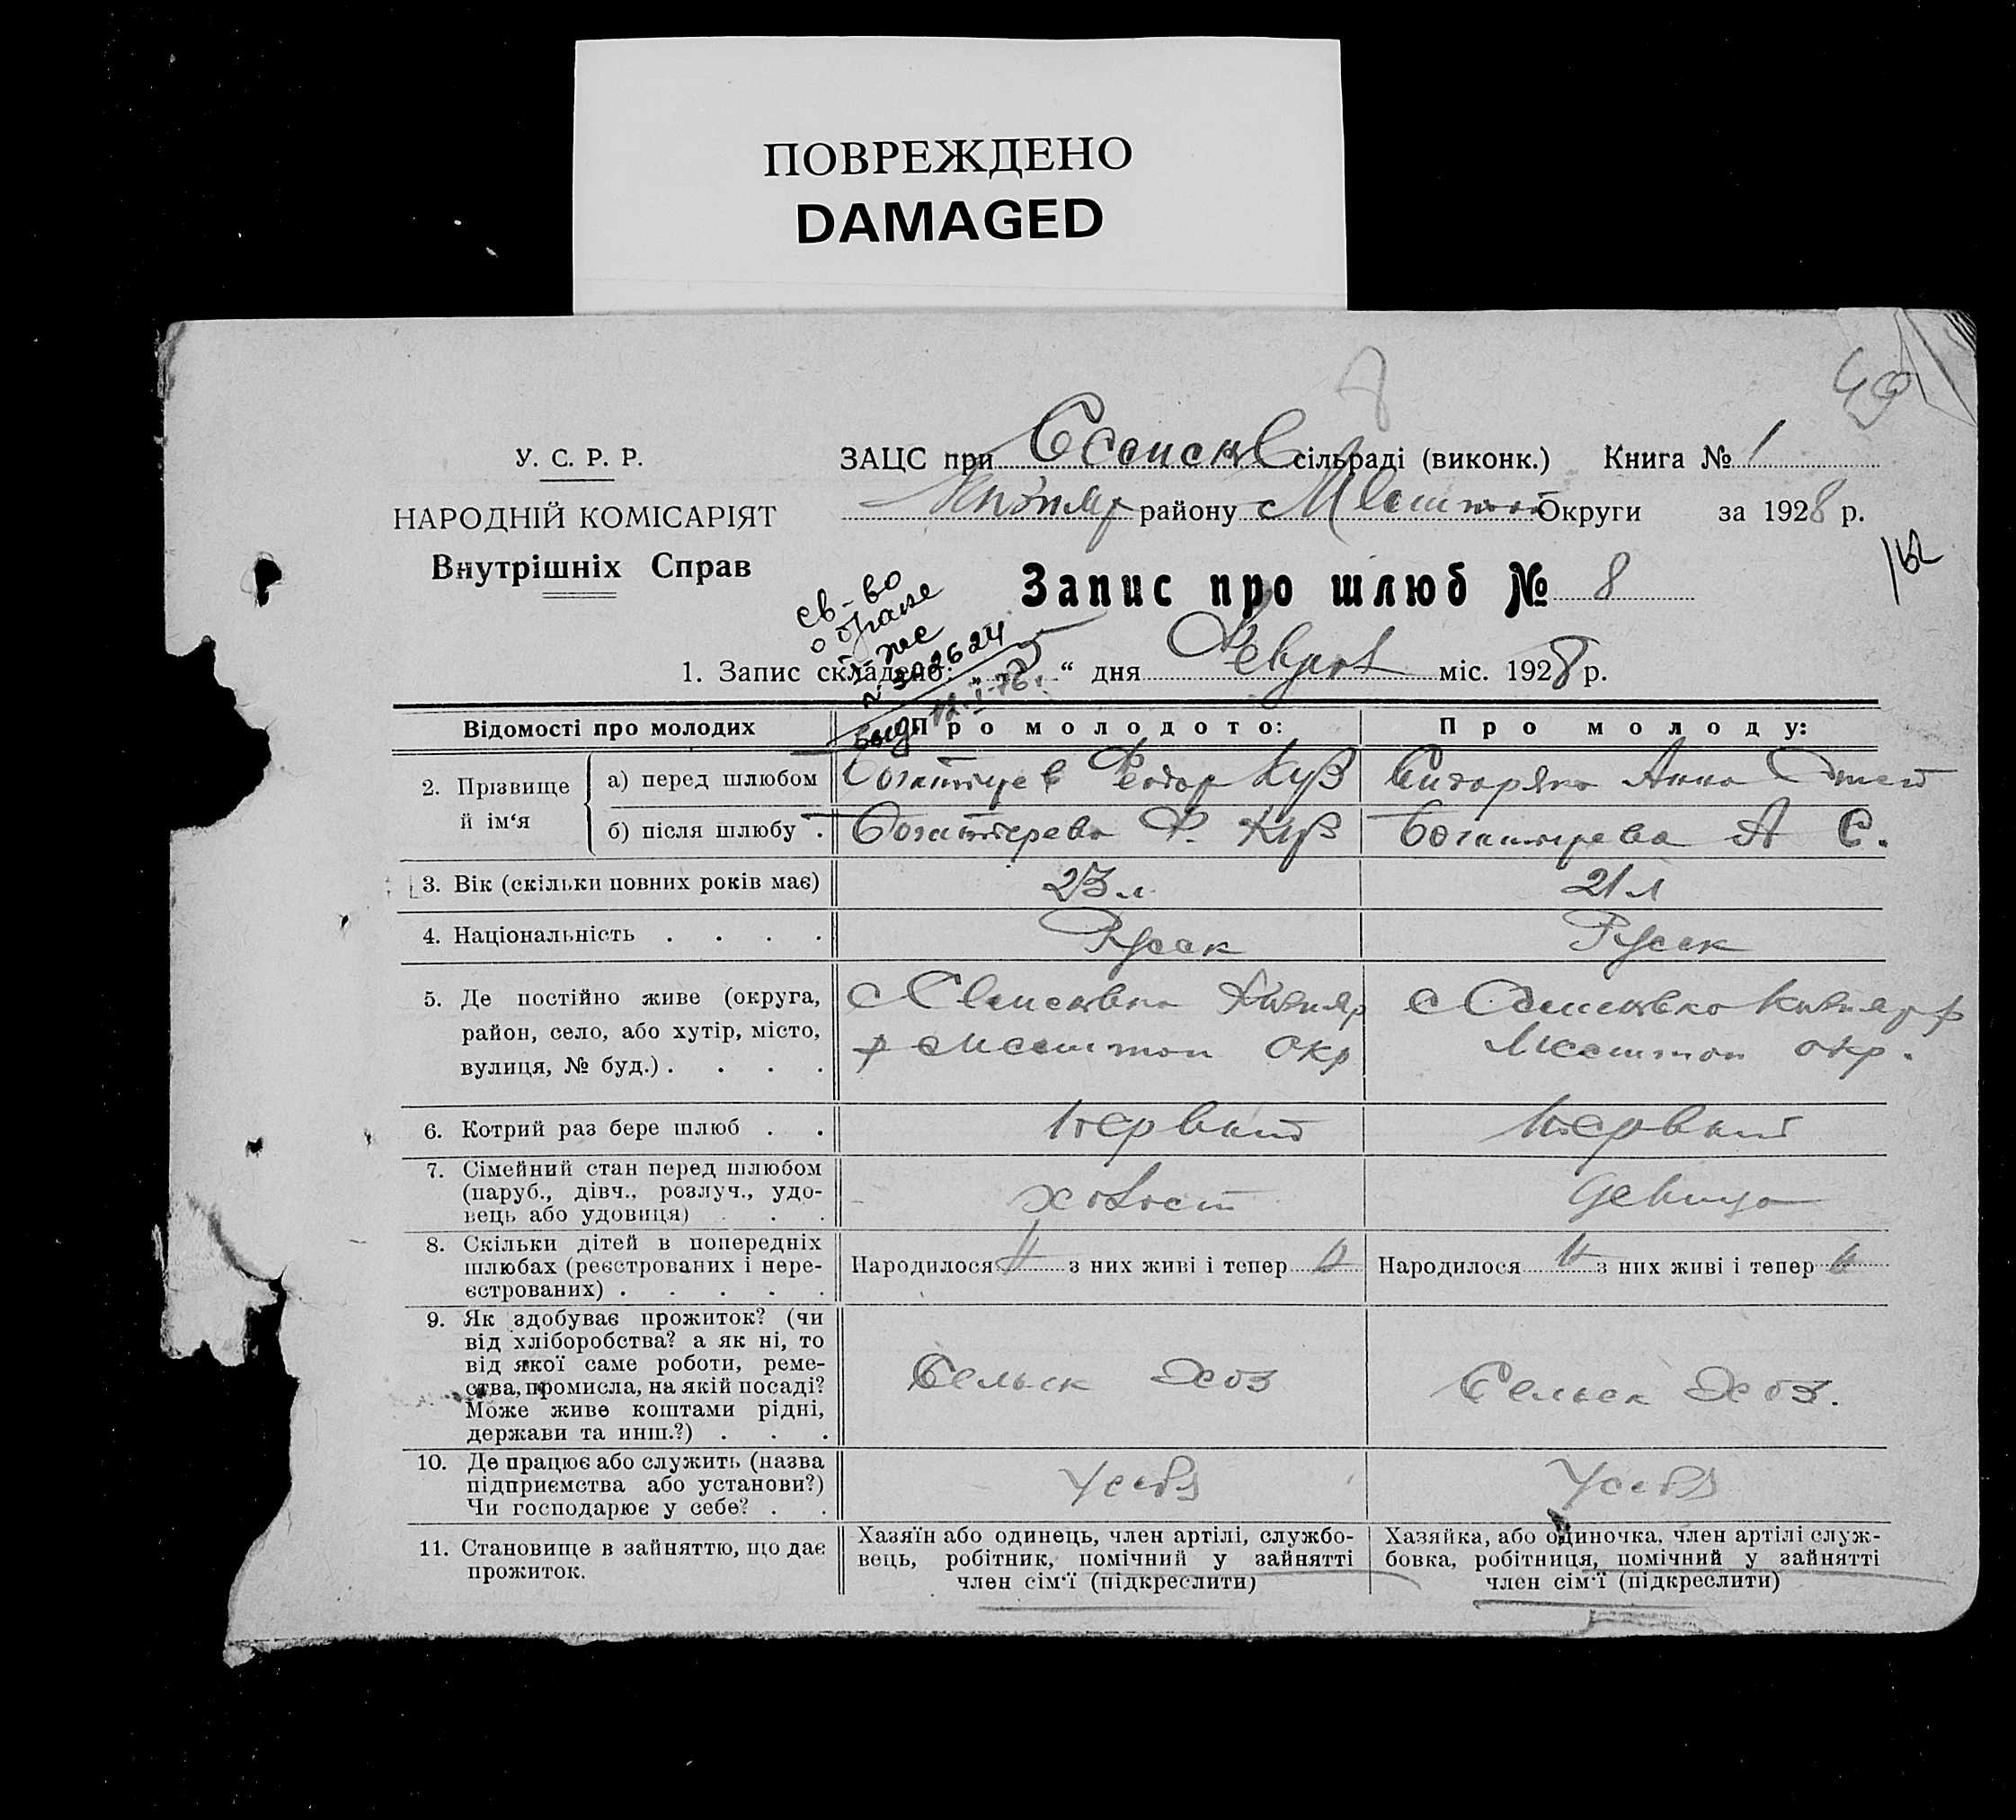 ПОВРЕЖДЕНО
DAMAGED
У. С. Р. Р.
НАРОДНІЙ КОМІСАРІЯТ
Внутрішніх Справ
ЗАЦС при сільраді (виконк.) Книга № 1
району Округи за 1928 р.
162
Запис про шлюб № 8
св-во
о браке
№ 302624
выд. 12.I-76г.
1. Запис складено: “ дня міс. 1928 р.
Відомості про молодих
Про молодого:
Про молоду:
2. Прізвище й ім‘я
а) перед шлюбом
Федор Куз
Анна
б) після шлюбу .
Богатирева Ф. Куз
Богатирева А С.
3. Вік (скільки повних років має)
23 л
21 л
4. Національність . . . .
Русск
Русск
5. Де постійно живе (округа,
район, село, або хутір, місто,
вулиця, № буд.) . . . .
с
р окр
с
окр.
6. Котрий раз бере шлюб . .
Первый
Первый
7. Сімейний стан перед шлюбом
(паруб., дівч., розлуч., удо-
вець або удовиця) . . .
холост
девица
8. Скільки дітей в попередніх
шлюбах (реєстрованих і нере-
єстрованих) . . . . .
Народилося з них живі і тепер
Народилося з них живі і тепер
9. Як здобуває прожиток? (чи
від хліборобства? а як ні, то
від якої саме роботи, реме-
ства, промисла, на якій посаді?
Може живе коштами рідні,
держави та инш.?) . . .
Сельск Хоз
Сельск Хоз.
10. Де працює або служить (назва
підприємства або установи?)
Чи господарює у себе? . .
У себя
У себя
11. Становище в зайняттю, що дає
прожиток.
Хазяїн або одинець, член артілі, службо-
вець, робітник, помічний у зайнятті
член сім‘ї (підкреслити)
Хазяйка, або одиночка, член артілі служ-
бовка, робітниця, помічний у зайнятті
член сім‘ї (підкреслити)